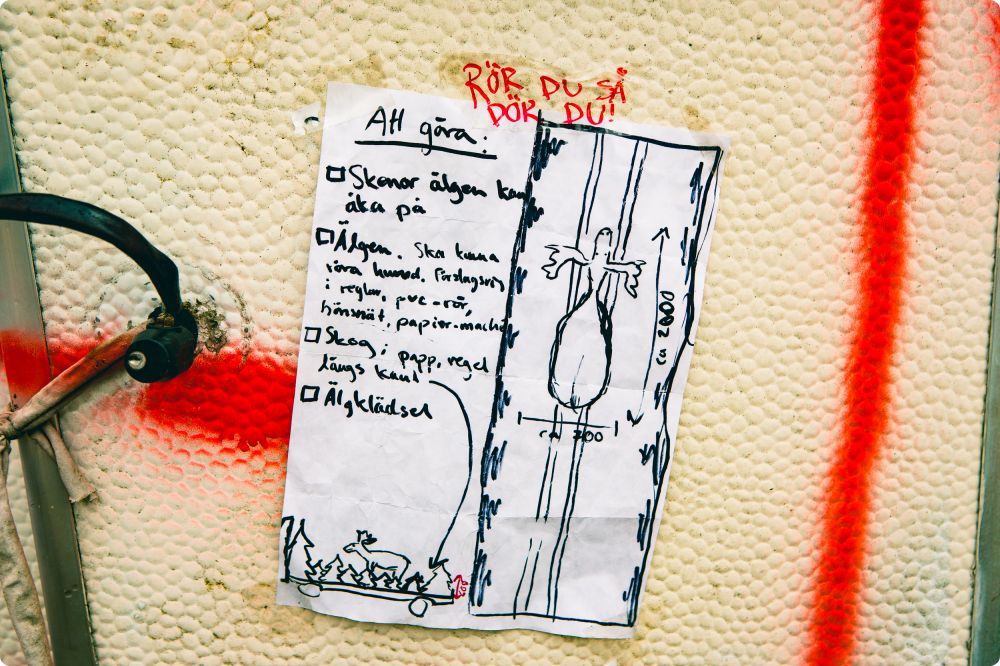 RÖR DU SÅ
DÖR DU!
Att göra:
Skenor älgen kan
åka på
Älgen. Ska kunna
röra huvud. Förslagsvis
i reglar, pvc-rör,
hönsnät, papier-maché
Skog i papp, regel
längs kant
Älgklädsel
ca 2000
ca 700